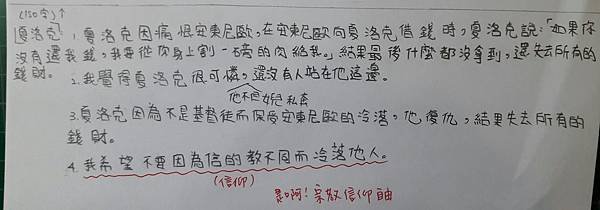 (150字)↑
夏洛克:1.夏洛克因痛恨安東尼歐,在安東尼歐向夏洛克借錢時,夏洛克說:「如果你
沒有還我錢,我要從你身上割一磅的肉給我。」結果最後什麼都沒拿到,還失去所有的
錢財。
2.我覺得夏洛克很可憐,還沒有人站在他這邊。
他不但 女兒私奔
3.夏洛克因為不是基督徒而保受安東尼歐的冷落,他復仇,結果失去所有的
錢財。
4.我希望不要因為信的教不同而冷落他人。
(信仰)
是啊!宗教信仰自由